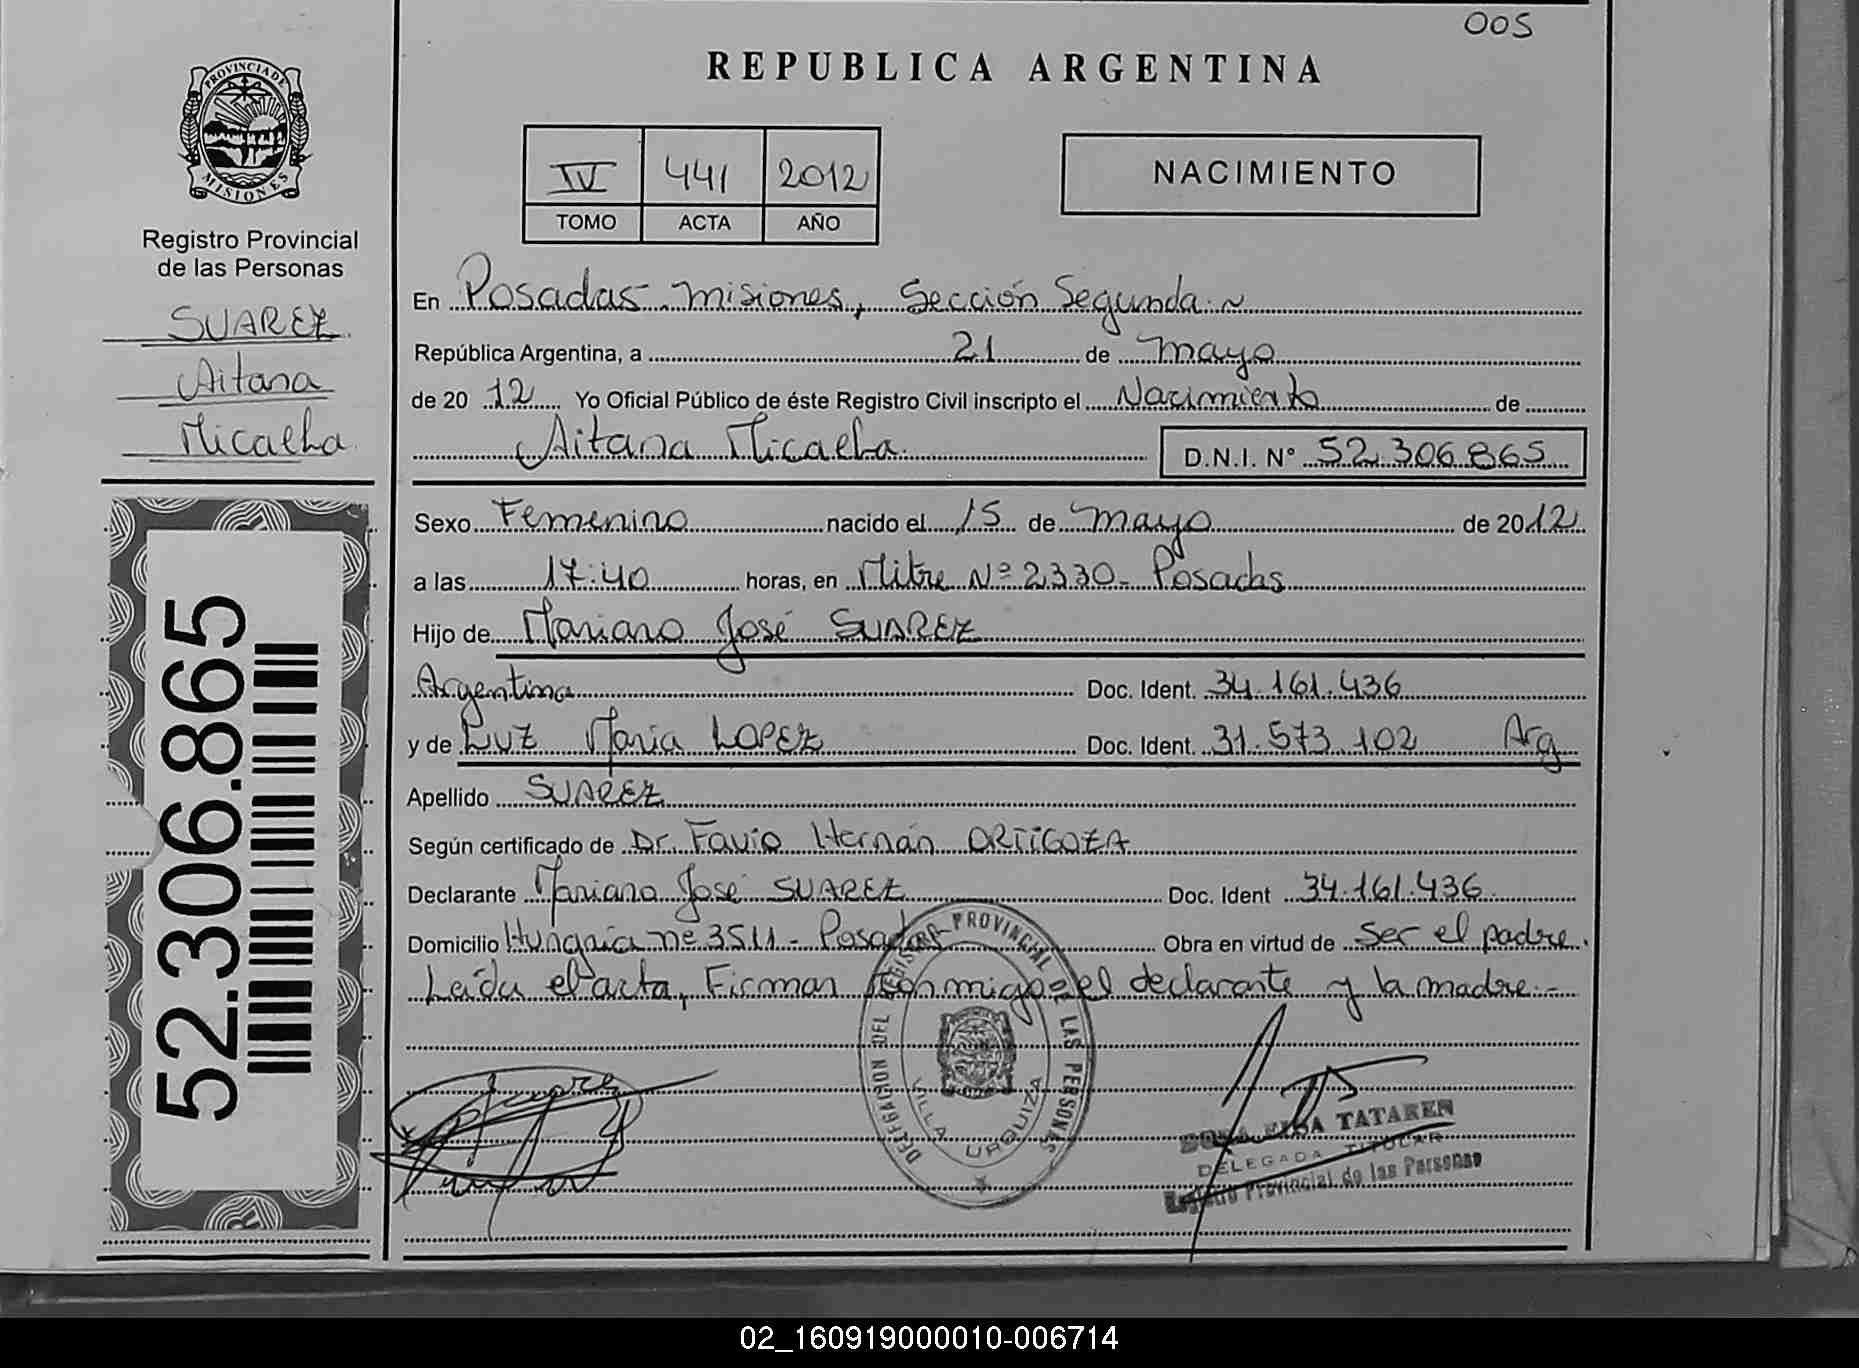 005
REPUBLICA ARGENTINA
PROVINCIA DE
MISIONES
Registro Provincial
de las Personas
SUAREZ
Aitana
Micaela
52.306.865
IV 441 2012
TOMO ACTA AÑO
NACIMIENTO
En Posadas. Misiones, Sección Segunda.~
República Argentina, a 21 de Mayo
de 20 12 Yo Oficial Público de éste Registro Civil inscripto el Nacimiento de
Aitana Micaela. D.N.I. N° 52.306.865
Sexo Femenino nacido el 15 de Mayo de 2012
a las 17:40 horas, en Mitre Nº 2330- Posadas
Hijo de Mariano José SUAREZ
Argentina Doc. Ident. 34.161.436
y de Luz Maria LOPEZ Doc. Ident. 31.573.102 Arg
Apellido SUAREZ
Según certificado de Dr. Favio Hernán ORTIGOZA
Declarante Mariano José SUAREZ Doc. Ident 34.161.436.
Domicilio Hungria nº 3511 - Posadas Obra en virtud de Ser el padre.
Leída el acta, Firman conmigo el declarante y la madre.-
DELEGACION DEL REGISTRO PROVINCIAL DE LAS PERSONAS
VILLA URQUIZA
TATAREN
DELEGADA TITULAR
Registro Provincial de las Personas
02_160919000010-006714